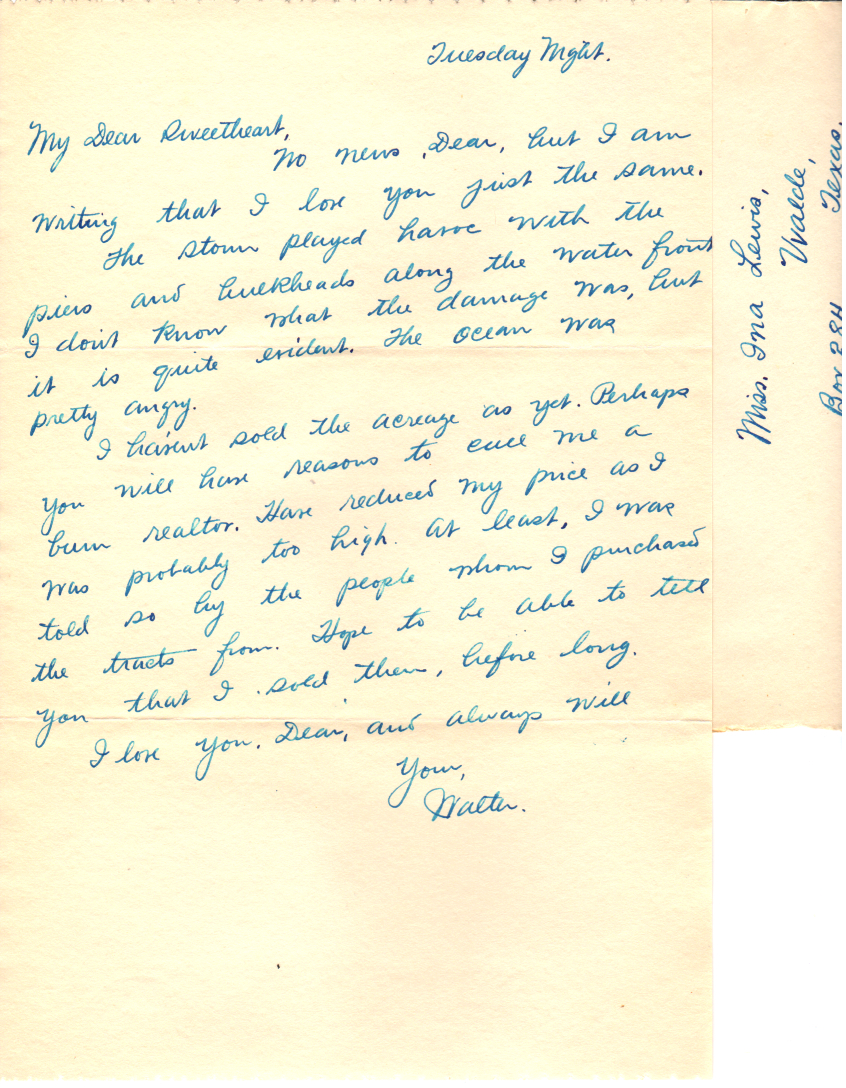 Tuesday Night.
My Dear Sweetheart,
No news, Dear, but I am
writing that I love you just the same.
The storm played havoc with the
piers and bulkheads along the water front
I don't know what the damage was, but
it is quite evident. The ocean was
pretty angry.
I haven't sold the acreage as yet. Perhaps
you will have reasons to call me a
bum realtor. Have reduced my price as I
was probably too high. At least, I was
told so by the people whom I purchased
the tracts from. Hope to be able to tell
you that I sold them, before long.
I love you, Dear, and always will
Your,
Walter.
Miss. Ina Lewis,
Uvalde,
Texas.
Box 284